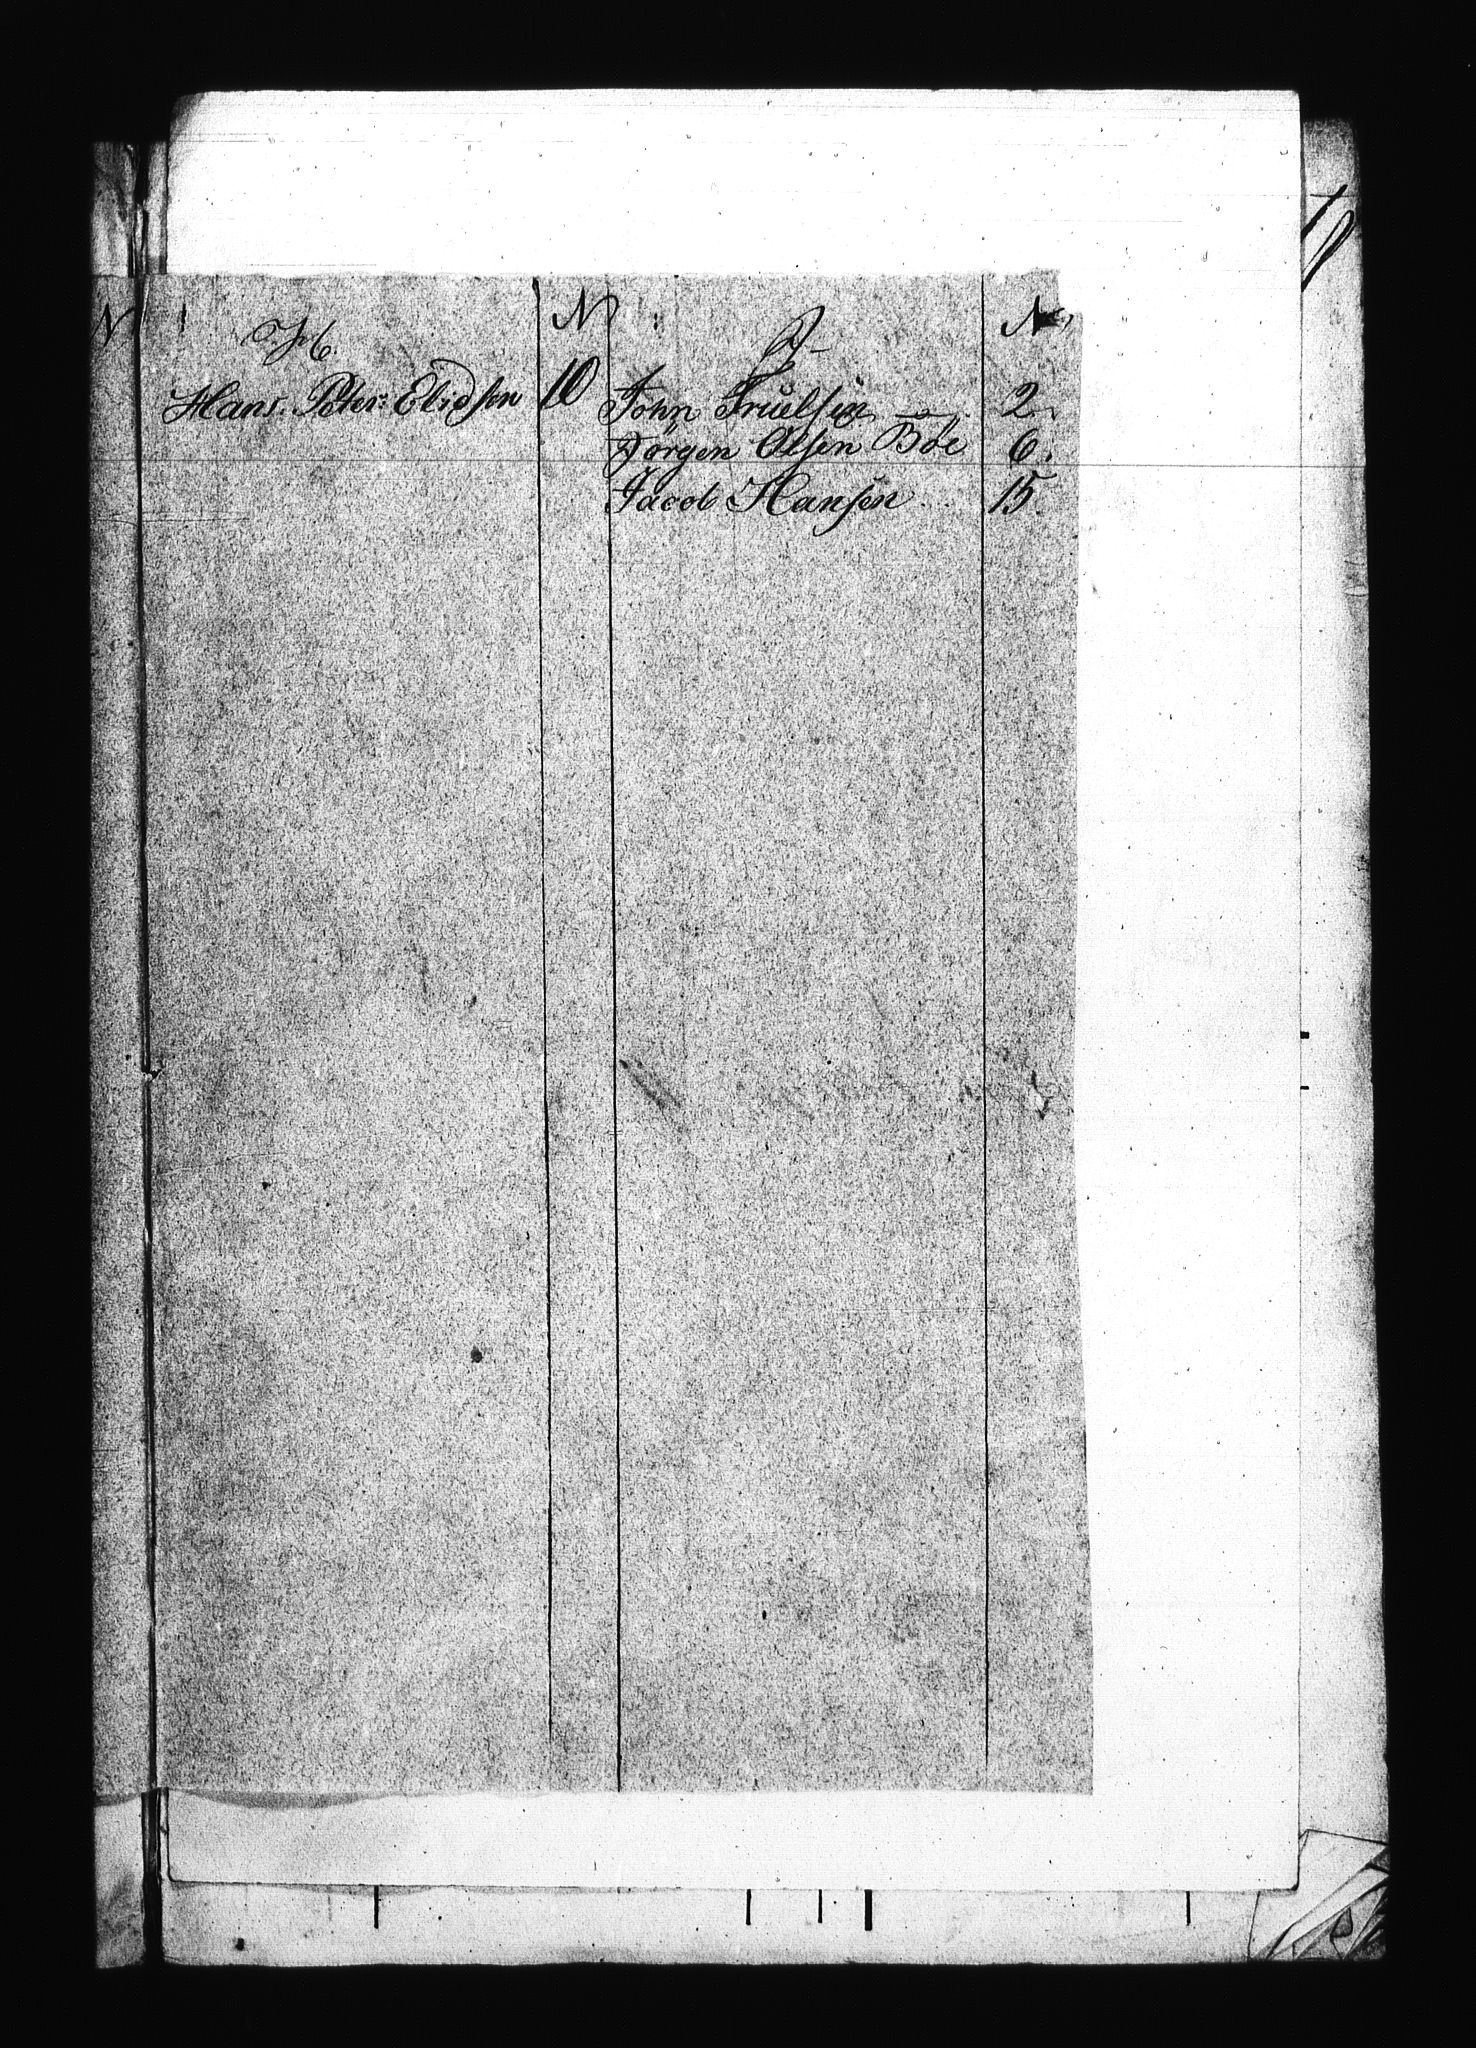 N
H.
N
J
No
Hans. Peter: Elidsen 10
John Truelsen 2.
Jörgen Olsen Böe 6.
Jacob Hansen 15.